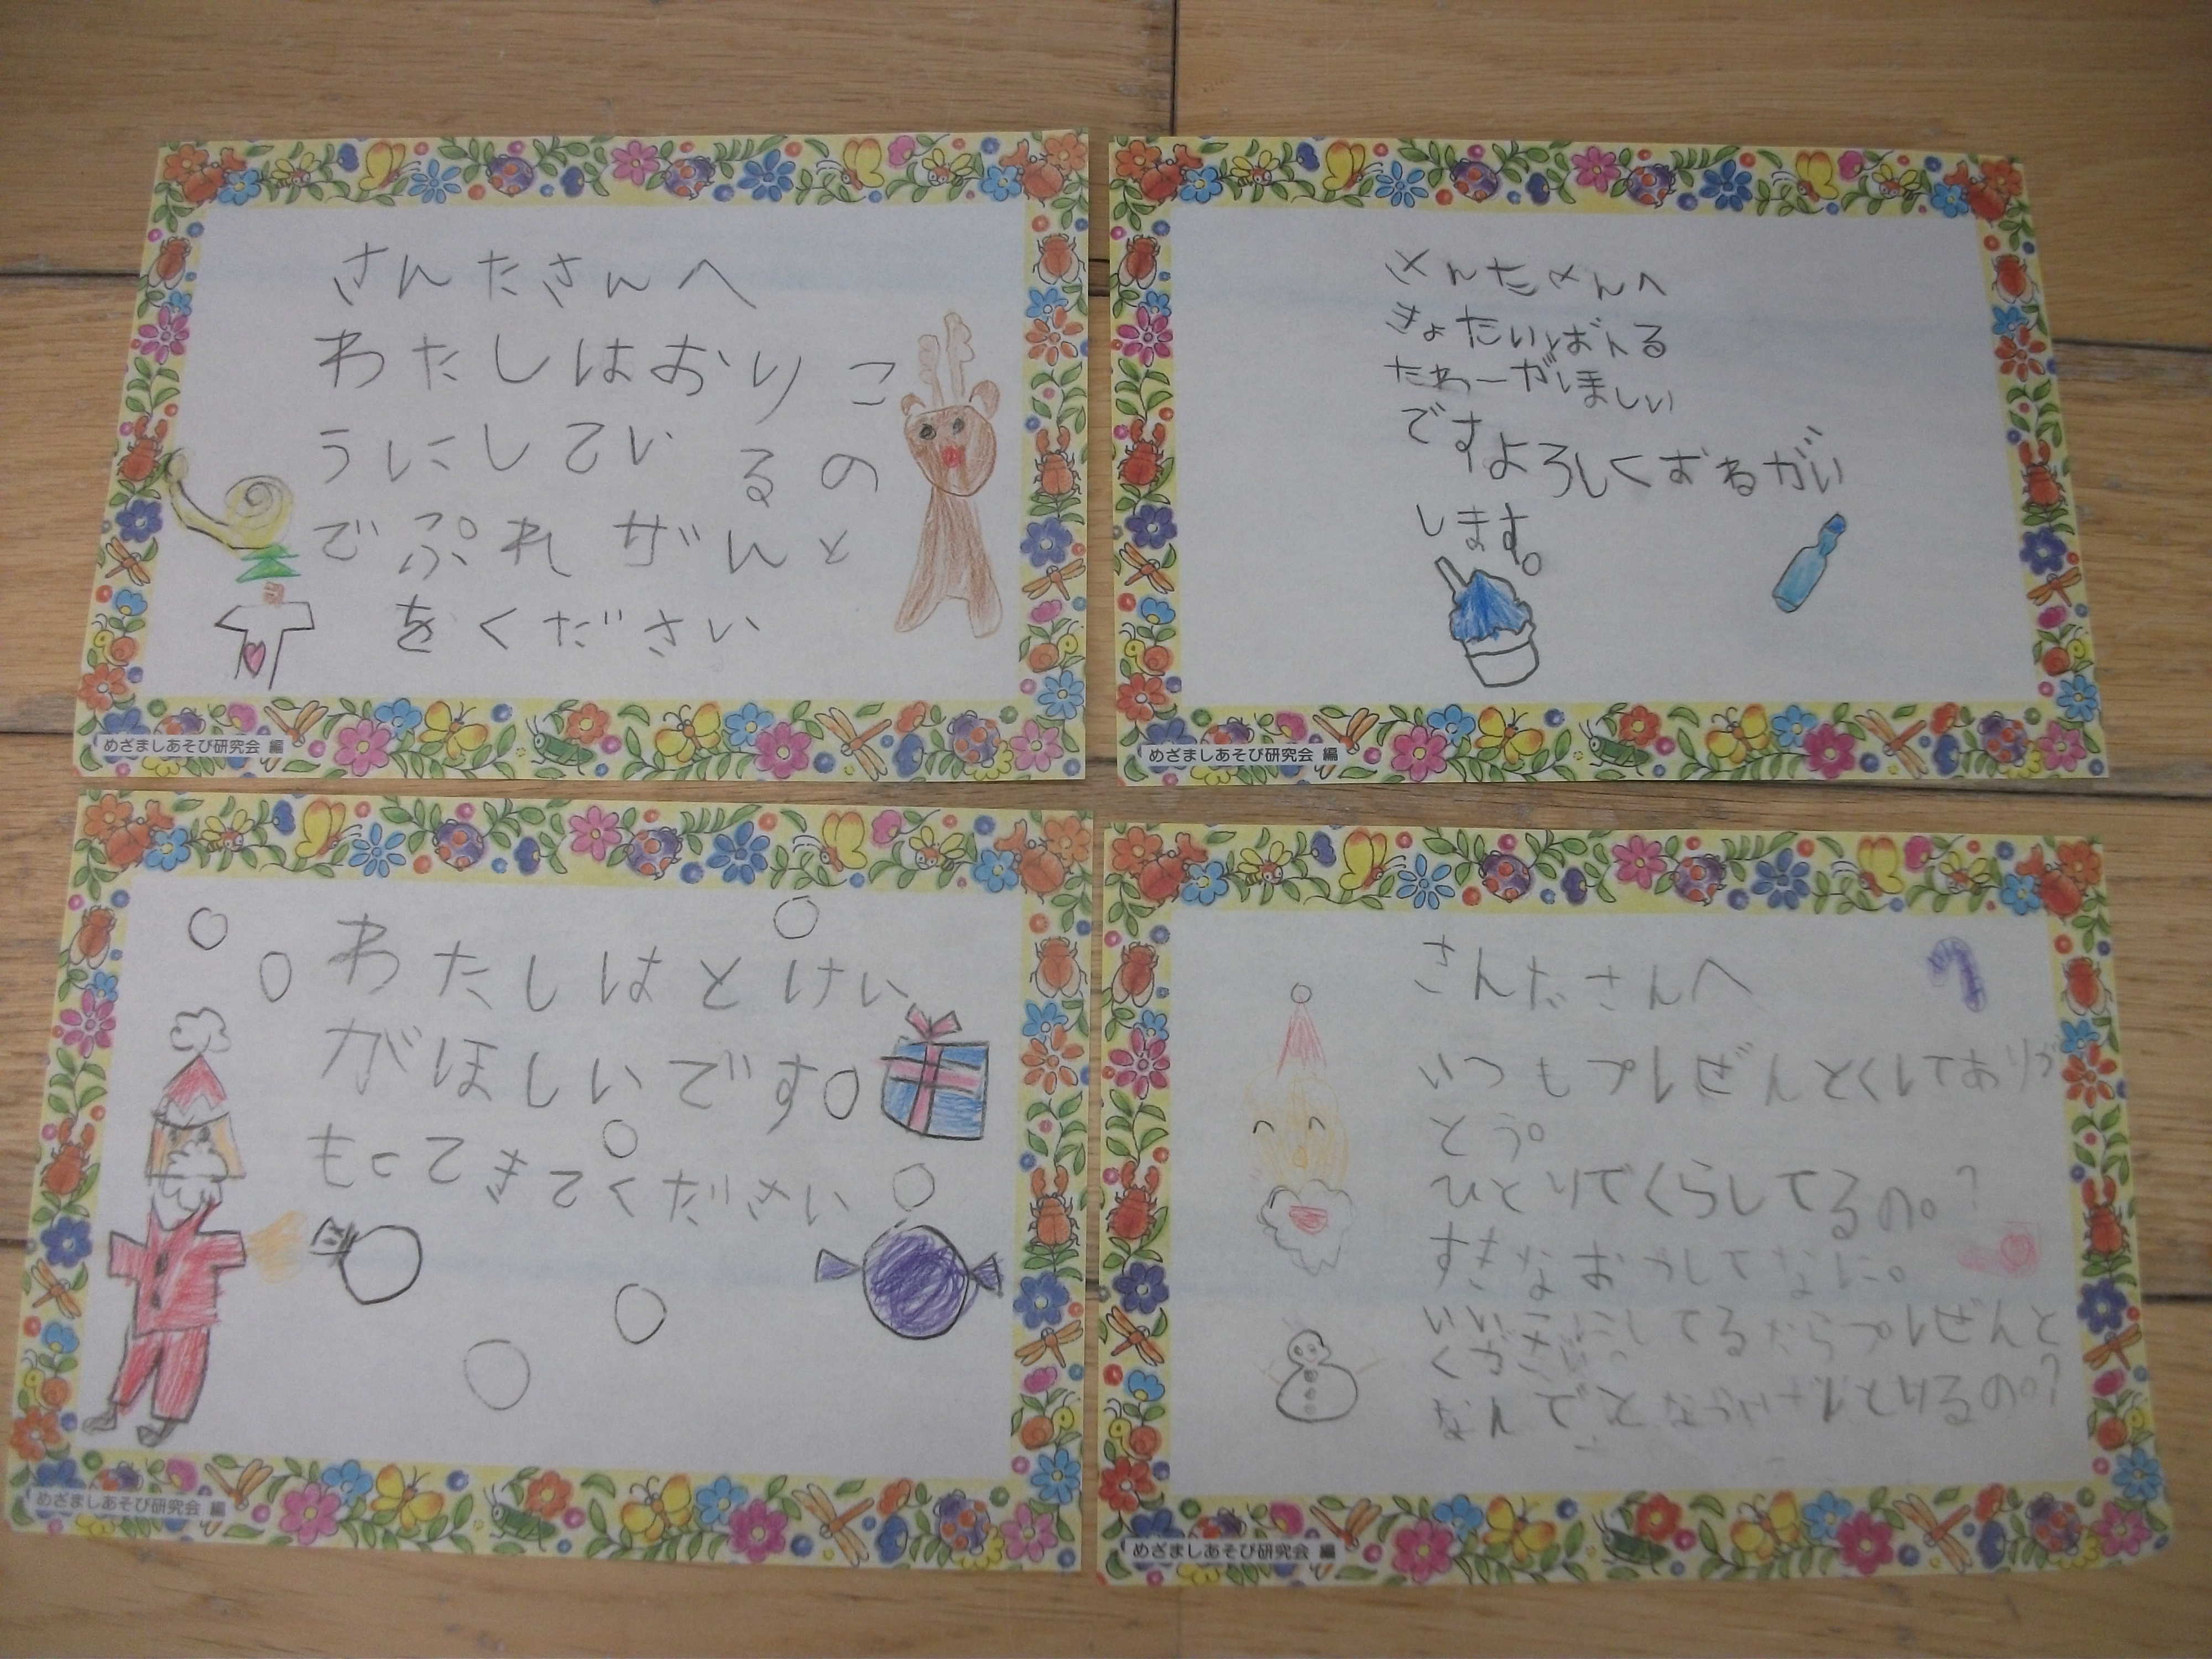 さんたさんへ
わたしはおりこ
うにしているの
でぷれぜんと
をください
めざましあそび研究会 編
さんたさんへ
きょだいばトる
たわーがほしい
ですよろしくおねがい
します。
めざましあそび研究会 編
わたしはとけい
がほしいです。
もってきてください
めざましあそび研究会 編
さんださんへ
いつもプレぜんとくしてありが
とう。
ひとりでくらしてるの。?
すきなおかしてなに。
いいこにしてるからプレぜんと
ください。
なんでとなかいさんはとりるの。?
めざましあそび研究会 編